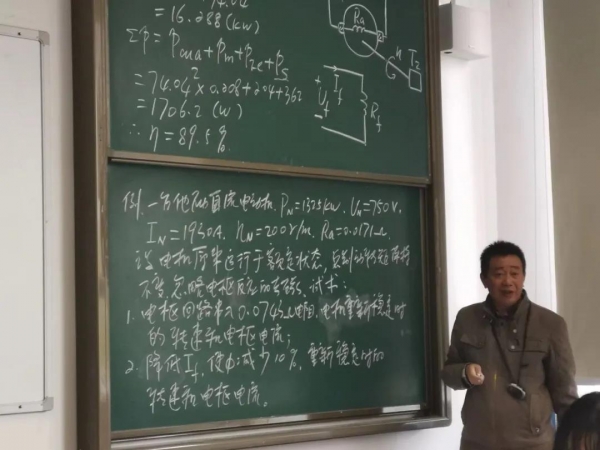 = 16.288 (kW)
Σp = pcua + pm + pFe + ps
= 74.04² × 0.208 + 204 + 362
= 1706.2 (W)
∴ η = 89.5%
Ra
n T2
Uf If Rf
例. 一台他励直流电动机, PN=1325kW, UN=750V,
IN=1930A, nN=200r/m, Ra=0.0171Ω.
设电机原来运行于额定状态,
不变, 忽略电枢反应的影响, 试求:
1. 电枢回路串入0.0743Ω电阻, 电机重新稳定时
的转速和电枢电流;
2. 降低If, 使Φ减少10%, 重新稳定时的
转速和电枢电流。